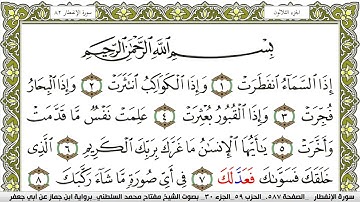 الجزء الثلاثون سورة الإنفطار ٨٢
بِسْمِ اللَّهِ الرَّحْمَٰنِ الرَّحِيمِ
إِذَا السَّمَآءُ انفَطَرَتْ ١ وَإِذَا الْكَوَاكِبُ انتَثَرَتْ ٢ وَإِذَا الْبِحَارُ
فُجِّرَتْ ٣ وَإِذَا الْقُبُورُ بُعْثِرَتْ ٤ عَلِمَتْ نَفْسٌ مَّا قَدَّمَتْ
وَأَخَّرَتْ ٥ يَٰٓأَيُّهَا الْإِنسَٰنُ مَا غَرَّكَ بِرَبِّكَ الْكَرِيمِ ٦ الَّذِى
خَلَقَكَ فَسَوَّىٰكَ فَعَدَّلَكَ ٧ فِىٓ أَىِّ صُورَةٍ مَّا شَآءَ رَكَّبَكَ ٨
سورة الإنفطار الصفحة ٥٨٧ الحزب ٥٩ الجزء ٣٠ بصوت الشيخ مفتاح محمد السلطني برواية ابن جماز عن أبي جعفر